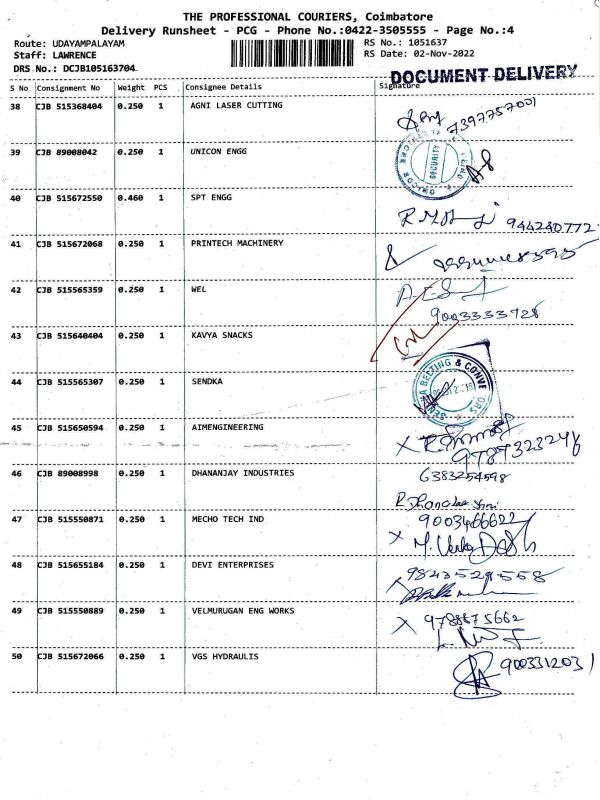 THE PROFESSIONAL COURIERS, Coimbatore
Delivery Runsheet - PCG - Phone No.:0422-3505555 - Page No.:4
Route: UDAYAMPALAYAM RS No.: 1051637
Staff: LAWRENCE RS Date: 02-Nov-2022
DRS No.: DCJB105163704
DOCUMENT DELIVERY
S No Consignment No Weight PCS Consignee Details Signature
38 CJB 515368404 0.250 1 AGNI LASER CUTTING
7397757001
39 CJB 89008042 0.250 1 UNICON ENGG
SECURITY
40 CJB 515672550 0.460 1 SPT ENGG
944240772
41 CJB 515672068 0.250 1 PRINTECH MACHINERY
42 CJB 515565359 0.250 1 WEL
9003333928
43 CJB 515640404 0.250 1 KAVYA SNACKS
44 CJB 515565307 0.250 1 SENDKA
BELTING & CONVE
45 CJB 515650594 0.250 1 AIMENGINEERING
9787323246
46 CJB 89008998 0.250 1 DHANANJAY INDUSTRIES
6383254598
47 CJB 515550871 0.250 1 MECHO TECH IND
9003466622
48 CJB 515655184 0.250 1 DEVI ENTERPRISES
9843529558
49 CJB 515550889 0.250 1 VELMURUGAN ENG WORKS
9788675662
50 CJB 515672066 0.250 1 VGS HYDRAULIS
9003312031